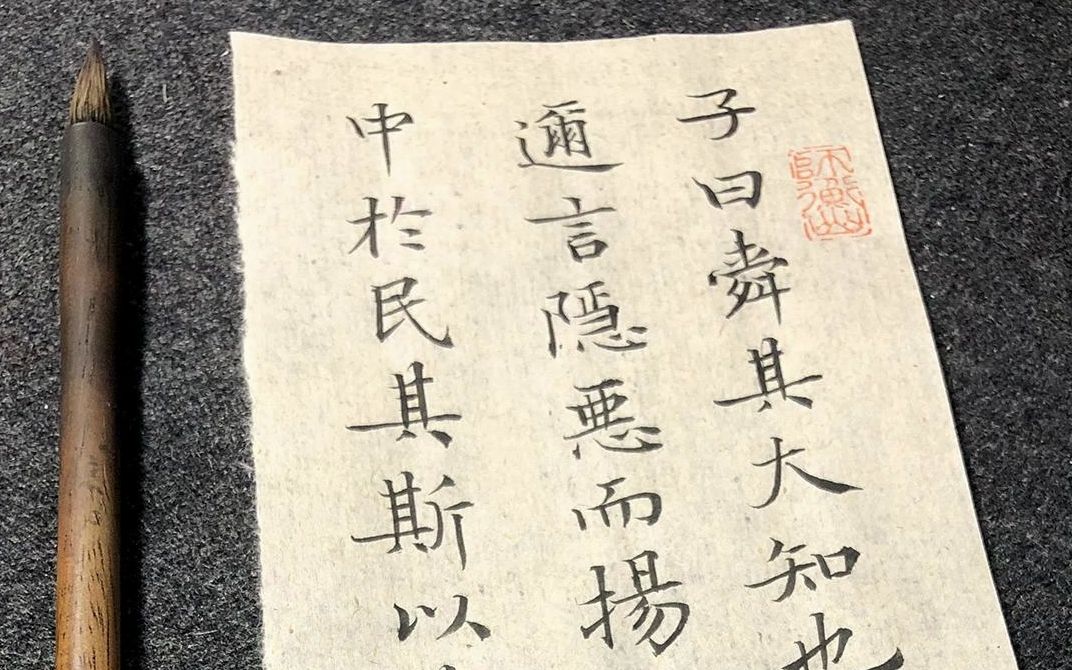 子曰舜其大知也
邇言隱惡而揚
中於民其斯以